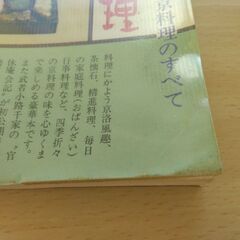 京料理のすべて
理
料理にかよう京洛風趣、
茶懐石、精進料理、毎日
の家庭料理(おばんざい)
行事料理など、四季折々
の京料理の味を心ゆくま
で楽しめる豪華本です。
また武者小路千家の〝官
休庵会記〟が初公開